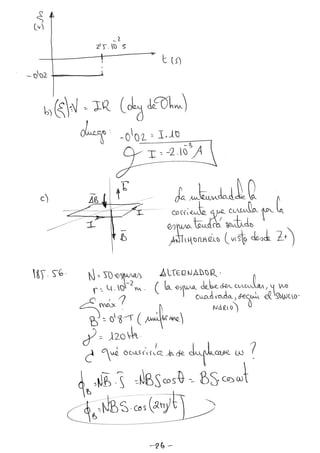 ε
(v)
25.10⁻² s
t (s)
-0'02
b) (ε) = V = IR (Ley de Ohm)
Luego: -0'02 = I.10
I = -2.10⁻³ A
c) ΔB B la intensidad de la
corriente que circula por la
I I espira tendrá sentido
B ANTIHORARIO (visto desde Z+)
185.56. N = 50 espiras ALTERNADOR.
r = 4.10⁻² m. (la espira debe ser circular, y no
cuadrada, según el enunciado)
ε máx?
B = 0'8 T (uniforme)
f = 120 Hz
¿ Qué ocurriría de duplicarse ω ?
ϕ_B = N B̄ · S̄ = NBS cos θ = BS.cos ωt
ϕ_B = NBS.cos(2πγt)
-26-